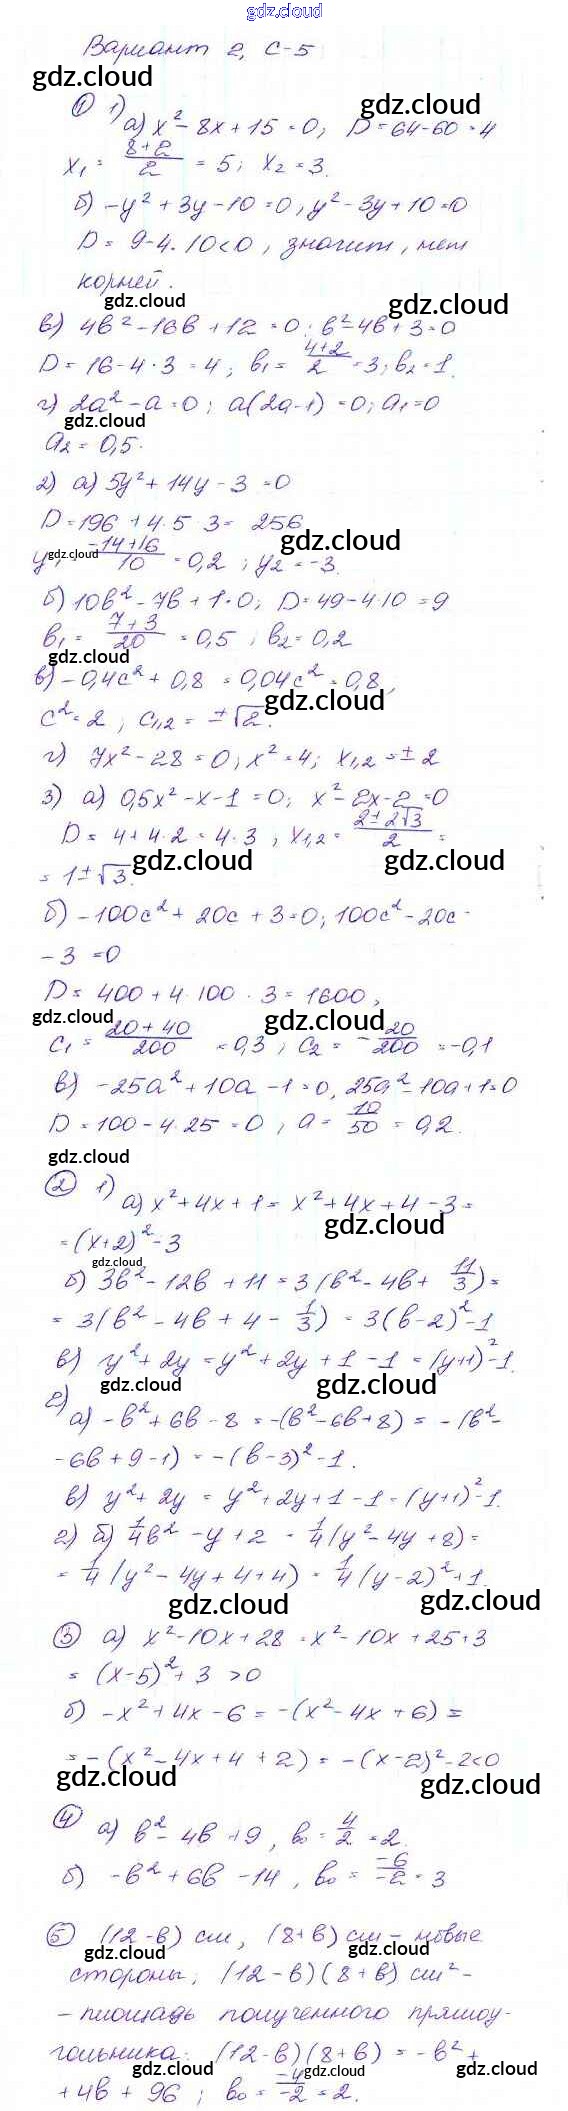 gdz.cloud
Вариант 2, С-5
gdz.cloud
gdz.cloud
① 1)
а) x² - 8x + 15 = 0; D = 64 - 60 = 4
x₁ = (8+2)/2 = 5; x₂ = 3.
б) -y² + 3y - 10 = 0, y² - 3y + 10 = 0
D = 9 - 4·10 < 0, значит, нет
корней.
gdz.cloud
gdz.cloud
в) 4в² - 16в + 12 = 0; в² - 4в + 3 = 0
D = 16 - 4·3 = 4; в₁ = (4+2)/2 = 3; в₂ = 1.
г) 2a² - a = 0; a(2a-1) = 0; a₁ = 0
gdz.cloud
a₂ = 0,5.
2) а) 5y² + 14y - 3 = 0
D = 196 + 4·5·3 = 256
gdz.cloud
gdz.cloud
y₁ = (-14+16)/10 = 0,2; y₂ = -3.
б) 10в² - 7в + 1 = 0; D = 49 - 4·10 = 9
в₁ = (7+3)/20 = 0,5; в₂ = 0,2
gdz.cloud
в) -0,4c² + 0,8 = 0,04c² = 0,8,
gdz.cloud
c² = 2, c₁,₂ = ±√2.
г) 7x² - 28 = 0; x² = 4; x₁,₂ = ±2
3) а) 0,5x² - x - 1 = 0; x² - 2x - 2 = 0
D = 4 + 4·2 = 4·3, x₁,₂ = (2±2√3)/2 =
gdz.cloud
gdz.cloud
= 1±√3.
б) -100c² + 20c + 3 = 0; 100c² - 20c -
- 3 = 0
D = 400 + 4·100·3 = 1600,
gdz.cloud
gdz.cloud
c₁ = (20+40)/200 = 0,3; c₂ = -20/200 = -0,1
в) -25a² + 10a - 1 = 0, 25a² - 10a + 1 = 0
D = 100 - 4·25 = 0, a = 10/50 = 0,2.
gdz.cloud
② 1)
а) x² + 4x + 1 = x² + 4x + 4 - 3 =
gdz.cloud
= (x+2)² - 3
gdz.cloud
б) 3в² - 12в + 11 = 3(в² - 4в + 11/3) =
= 3(в² - 4в + 4 - 1/3) = 3(в-2)² - 1
в) y² + 2y = y² + 2y + 1 - 1 = (y+1)² - 1.
gdz.cloud
gdz.cloud
2)
а) -в² + 6в - 8 = -(в² - 6в + 8) = -(в² -
- 6в + 9 - 1) = -(в-3)² - 1.
в) y² + 2y = y² + 2y + 1 - 1 = (y+1)² - 1.
г) б) 1/4в² - y + 2 = 1/4(y² - 4y + 8) =
= 1/4(y² - 4y + 4 + 4) = 1/4(y-2)² + 1.
gdz.cloud
gdz.cloud
③ а) x² - 10x + 28 = x² - 10x + 25 + 3
= (x-5)² + 3 > 0
б) -x² + 4x - 6 = -(x² - 4x + 6) =
= -(x² - 4x + 4 + 2) = -(x-2)² - 2 < 0
gdz.cloud
gdz.cloud
④ а) в² - 4в + 9, в₀ = 4/2 = 2.
gdz.cloud
б) -в² + 6в - 14, в₀ = -6/-2 = 3
⑤ (12-в) см, (8+в) см - новые
gdz.cloud
gdz.cloud
стороны; (12-в)(8+в) см² -
- площадь полученного прямоу-
гольника: (12-в)(8+в) = -в² +
gdz.cloud
gdz.cloud
gdz.cloud
+ 4в + 96; в₀ = -4/-2 = 2.